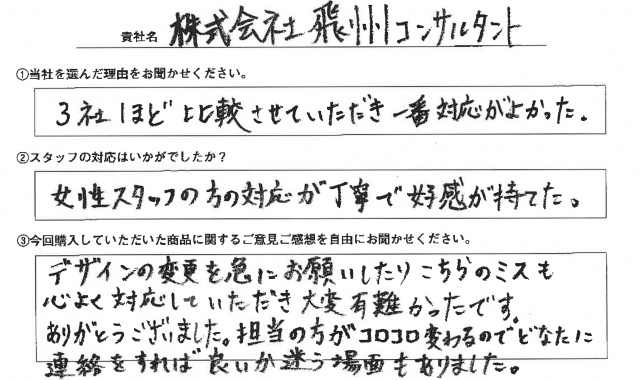 貴社名 株式会社飛州コンサルタント
①当社を選んだ理由をお聞かせください。
3社ほど比較させていただき一番対応がよかった。
②スタッフの対応はいかがでしたか？
女性スタッフの方の対応が丁寧で好感が持てた。
③今回購入していただいた商品に関するご意見ご感想を自由にお聞かせください。
デザインの変更を急にお願いしたりこちらのミスも
心よく対応していただき大変有難かったです。
ありがとうございました。担当の方がコロコロ変わるのでどなたに
連絡をすれば良いか迷う場面もありました。